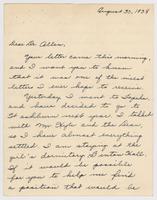 August 30, 1938
Dear Dr. Allen,
Your letter came this morning,
and I want you to know
that it was one of the nicest
letters I ever hope to receive.
Yesterday I went to
and have decided to go to
Washburn next year. I talked
with Mr. and the Dean,
so I have almost everything
settled. I am staying at the
girl's dormitory, Benton Hall.
If it would be possible
for you to help me find
a position that would be